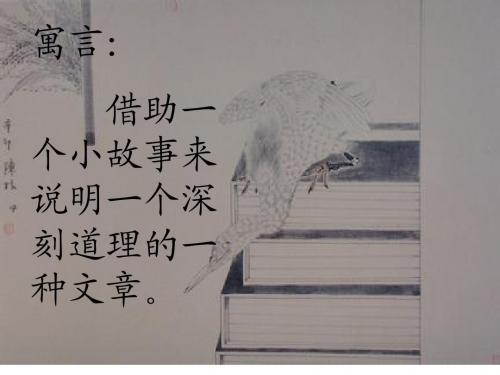 寓言：
借助一
个小故事来
说明一个深
刻道理的一
种文章。